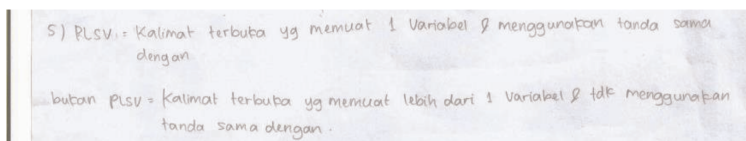 5) PLSV = Kalimat terbuka yg memuat 1 Variabel & menggunakan tanda sama
dengan
bukan PLSV = Kalimat terbuka yg memuat lebih dari 1 Variabel & tdk menggunakan
tanda sama dengan.